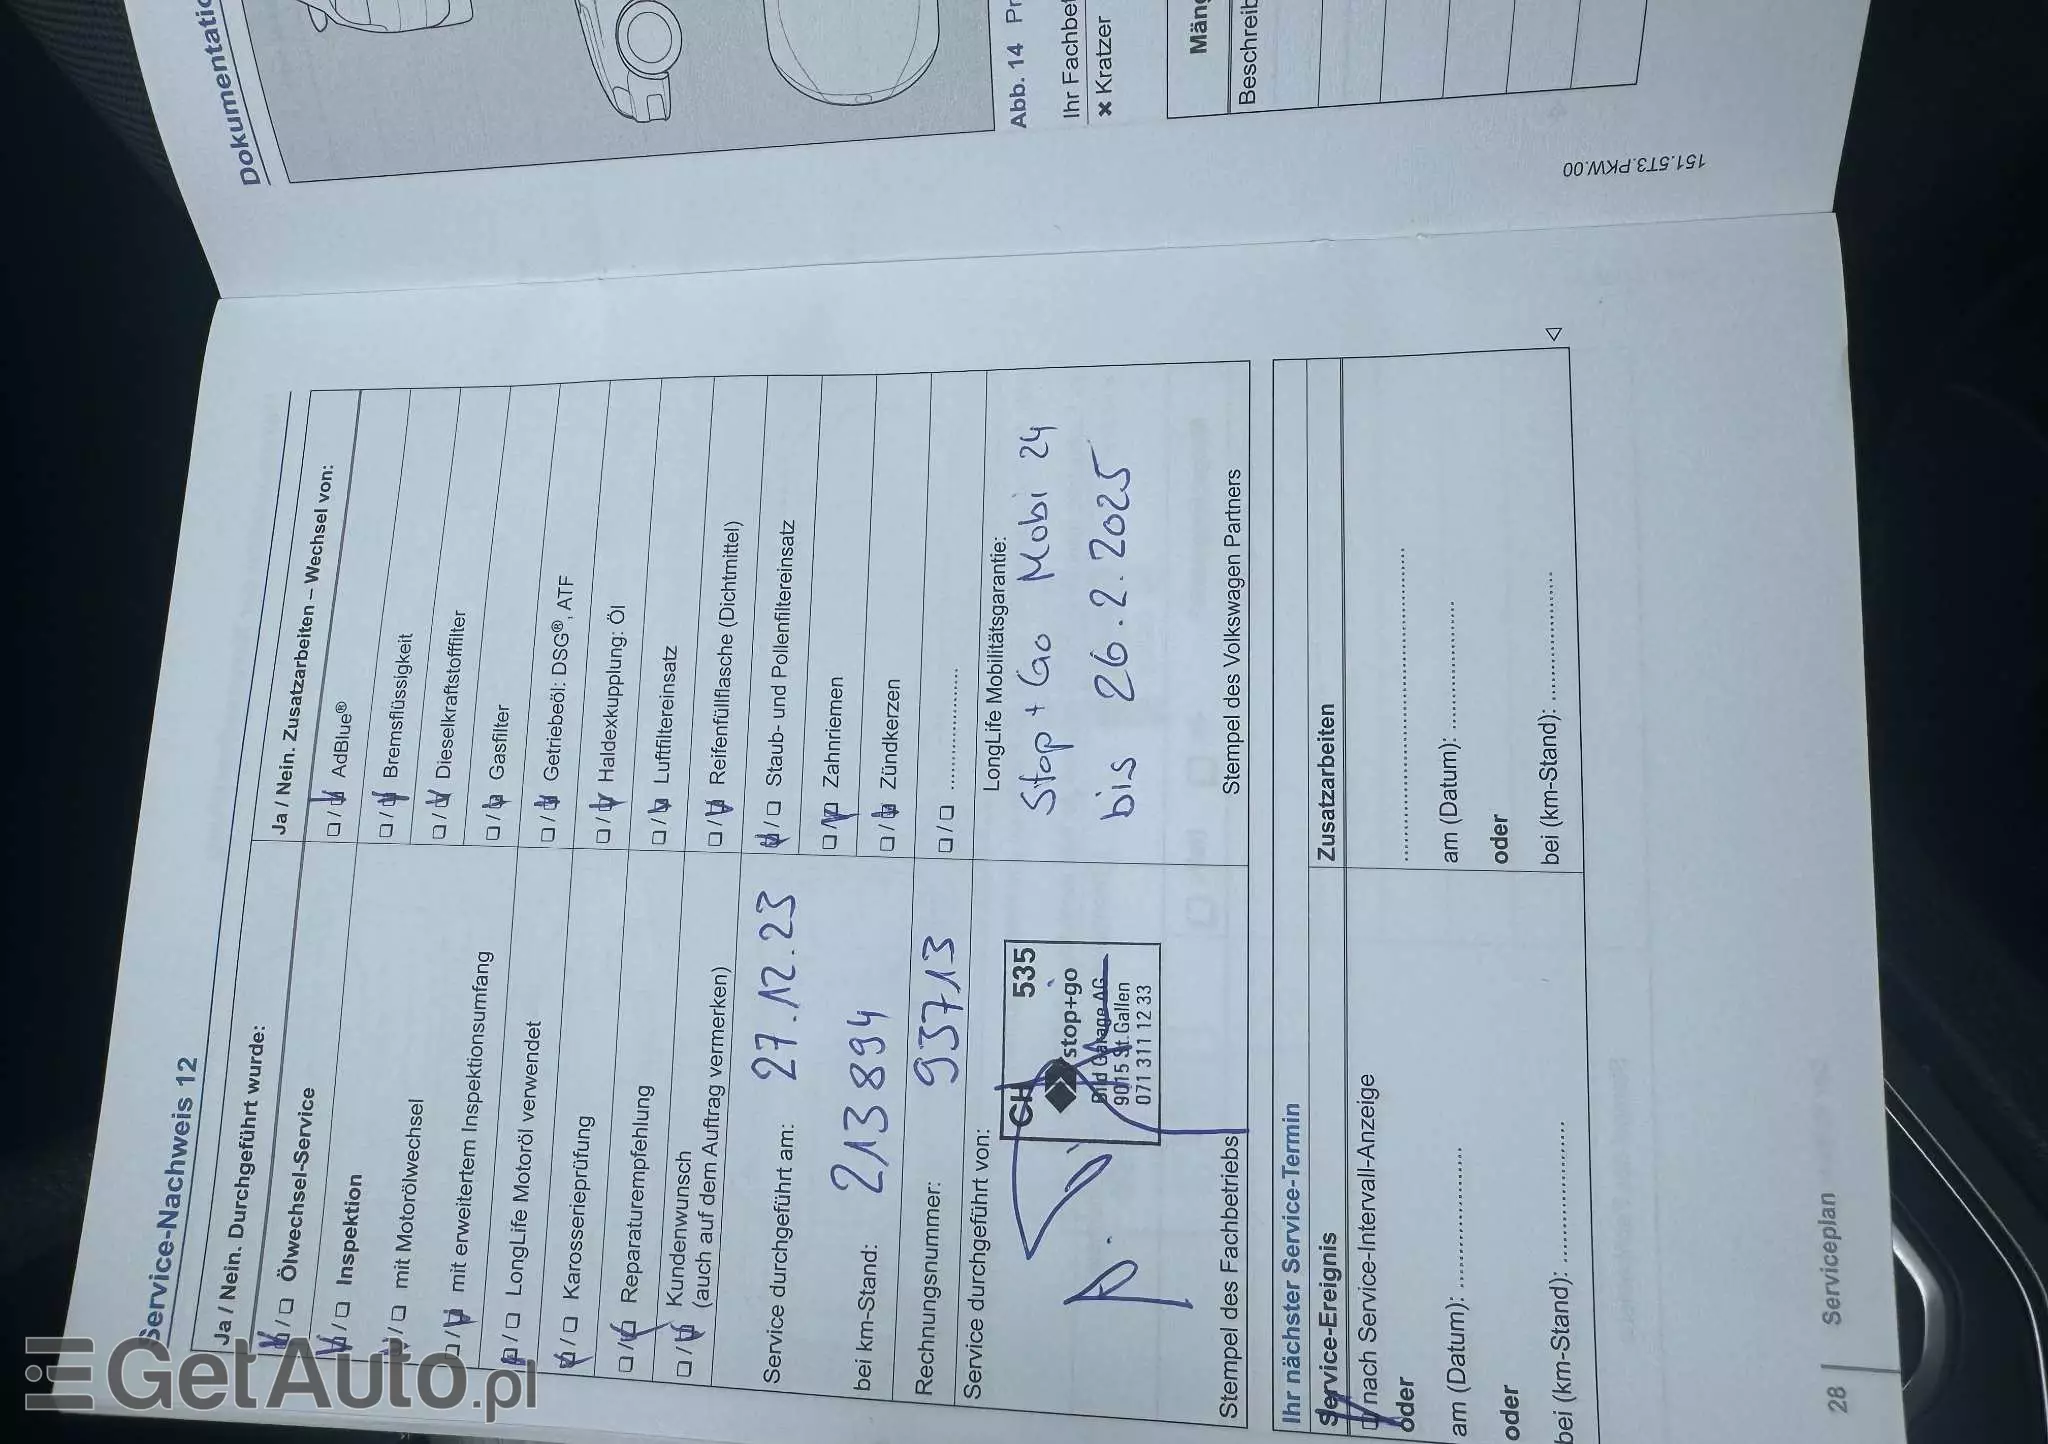 Service-Nachweis 12
Ja / Nein. Durchgeführt wurde:
Ölwechsel-Service
Inspektion
mit Motorölwechsel
mit erweitertem Inspektionsumfang
LongLife Motoröl verwendet
Karosserieprüfung
Reparaturempfehlung
Kundenwunsch
(auch auf dem Auftrag vermerken)
Service durchgeführt am: 27.12.23
bei km-Stand: 213 894
Rechnungsnummer: 93713
Service durchgeführt von:
CH 535
stop+go
Garage AG
9015 St.Gallen
071 311 12 33
Stempel des Fachbetriebs
Ja / Nein. Zusatzarbeiten – Wechsel von:
AdBlue®
Bremsflüssigkeit
Dieselkraftstofffilter
Gasfilter
Getriebeöl: DSG®, ATF
Haldexkupplung: Öl
Luftfiltereinsatz
Reifenfüllflasche (Dichtmittel)
Staub- und Pollenfiltereinsatz
Zahnriemen
Zündkerzen
....................
LongLife Mobilitätsgarantie:
Stop + Go Mobi 24
bis 26.2.2025
Stempel des Volkswagen Partners
Ihr nächster Service-Termin
Service-Ereignis
nach Service-Intervall-Anzeige
oder
am (Datum): ....................
oder
bei (km-Stand): ....................
Zusatzarbeiten
....................
am (Datum): ....................
oder
bei (km-Stand): ....................
28 Serviceplan
Dokumentatio
Abb. 14 Pr
Ihr Fachbet
× Kratzer
Mäng
Beschreib
151.5T3.PKW.00
GetAuto.pl